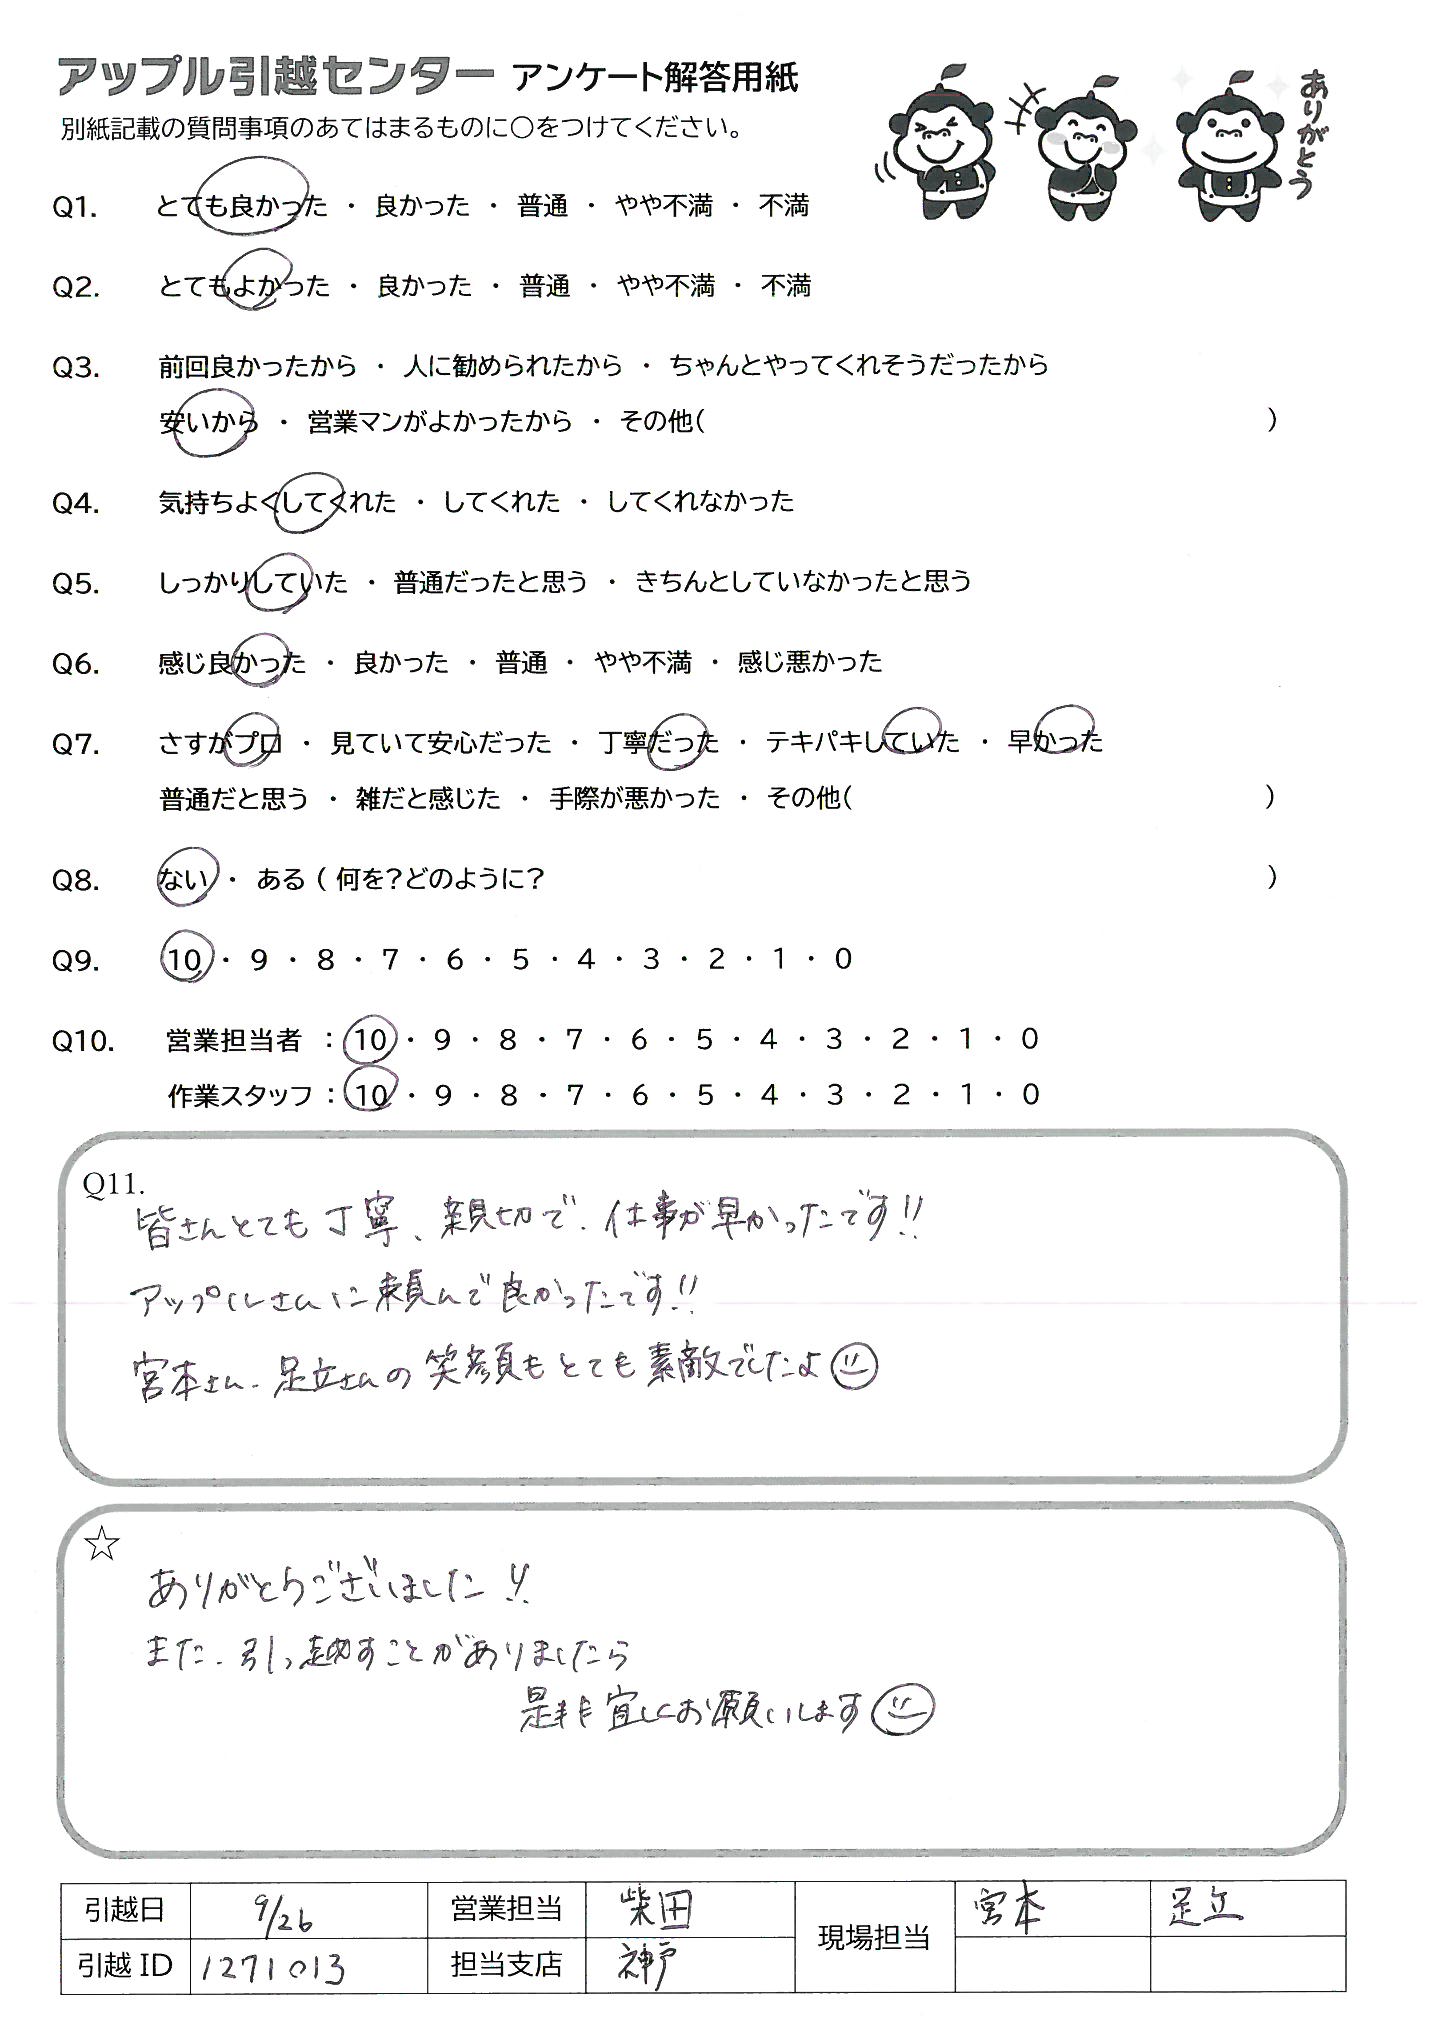 アップル引越センター アンケート解答用紙
ありがとう
別紙記載の質問事項のあてはまるものに〇をつけてください。
Q1. とても良かった ・ 良かった ・ 普通 ・ やや不満 ・ 不満
Q2. とてもよかった ・ 良かった ・ 普通 ・ やや不満 ・ 不満
Q3. 前回良かったから ・ 人に勧められたから ・ ちゃんとやってくれそうだったから
安いから ・ 営業マンがよかったから ・ その他( )
Q4. 気持ちよくしてくれた ・ してくれた ・ してくれなかった
Q5. しっかりしていた ・ 普通だったと思う ・ きちんとしていなかったと思う
Q6. 感じ良かった ・ 良かった ・ 普通 ・ やや不満 ・ 感じ悪かった
Q7. さすがプロ ・ 見ていて安心だった ・ 丁寧だった ・ テキパキしていた ・ 早かった
普通だと思う ・ 雑だと感じた ・ 手際が悪かった ・ その他( )
Q8. ない ・ ある ( 何を?どのように? )
Q9. 10 ・ 9 ・ 8 ・ 7 ・ 6 ・ 5 ・ 4 ・ 3 ・ 2 ・ 1 ・ 0
Q10. 営業担当者 : 10 ・ 9 ・ 8 ・ 7 ・ 6 ・ 5 ・ 4 ・ 3 ・ 2 ・ 1 ・ 0
作業スタッフ : 10 ・ 9 ・ 8 ・ 7 ・ 6 ・ 5 ・ 4 ・ 3 ・ 2 ・ 1 ・ 0
Q11.
皆さんとても丁寧、親切で、仕事が早かったです!!
アップルさんに頼んで良かったです!!
宮本さん、足立さんの笑顔もとても素敵でしたよ
☆
ありがとうございました!!
また、引っ越すことがありましたら
是非宜しくお願いします
引越日 9/26 営業担当 柴田 現場担当 宮本 足立
引越ID 1271013 担当支店 神戸